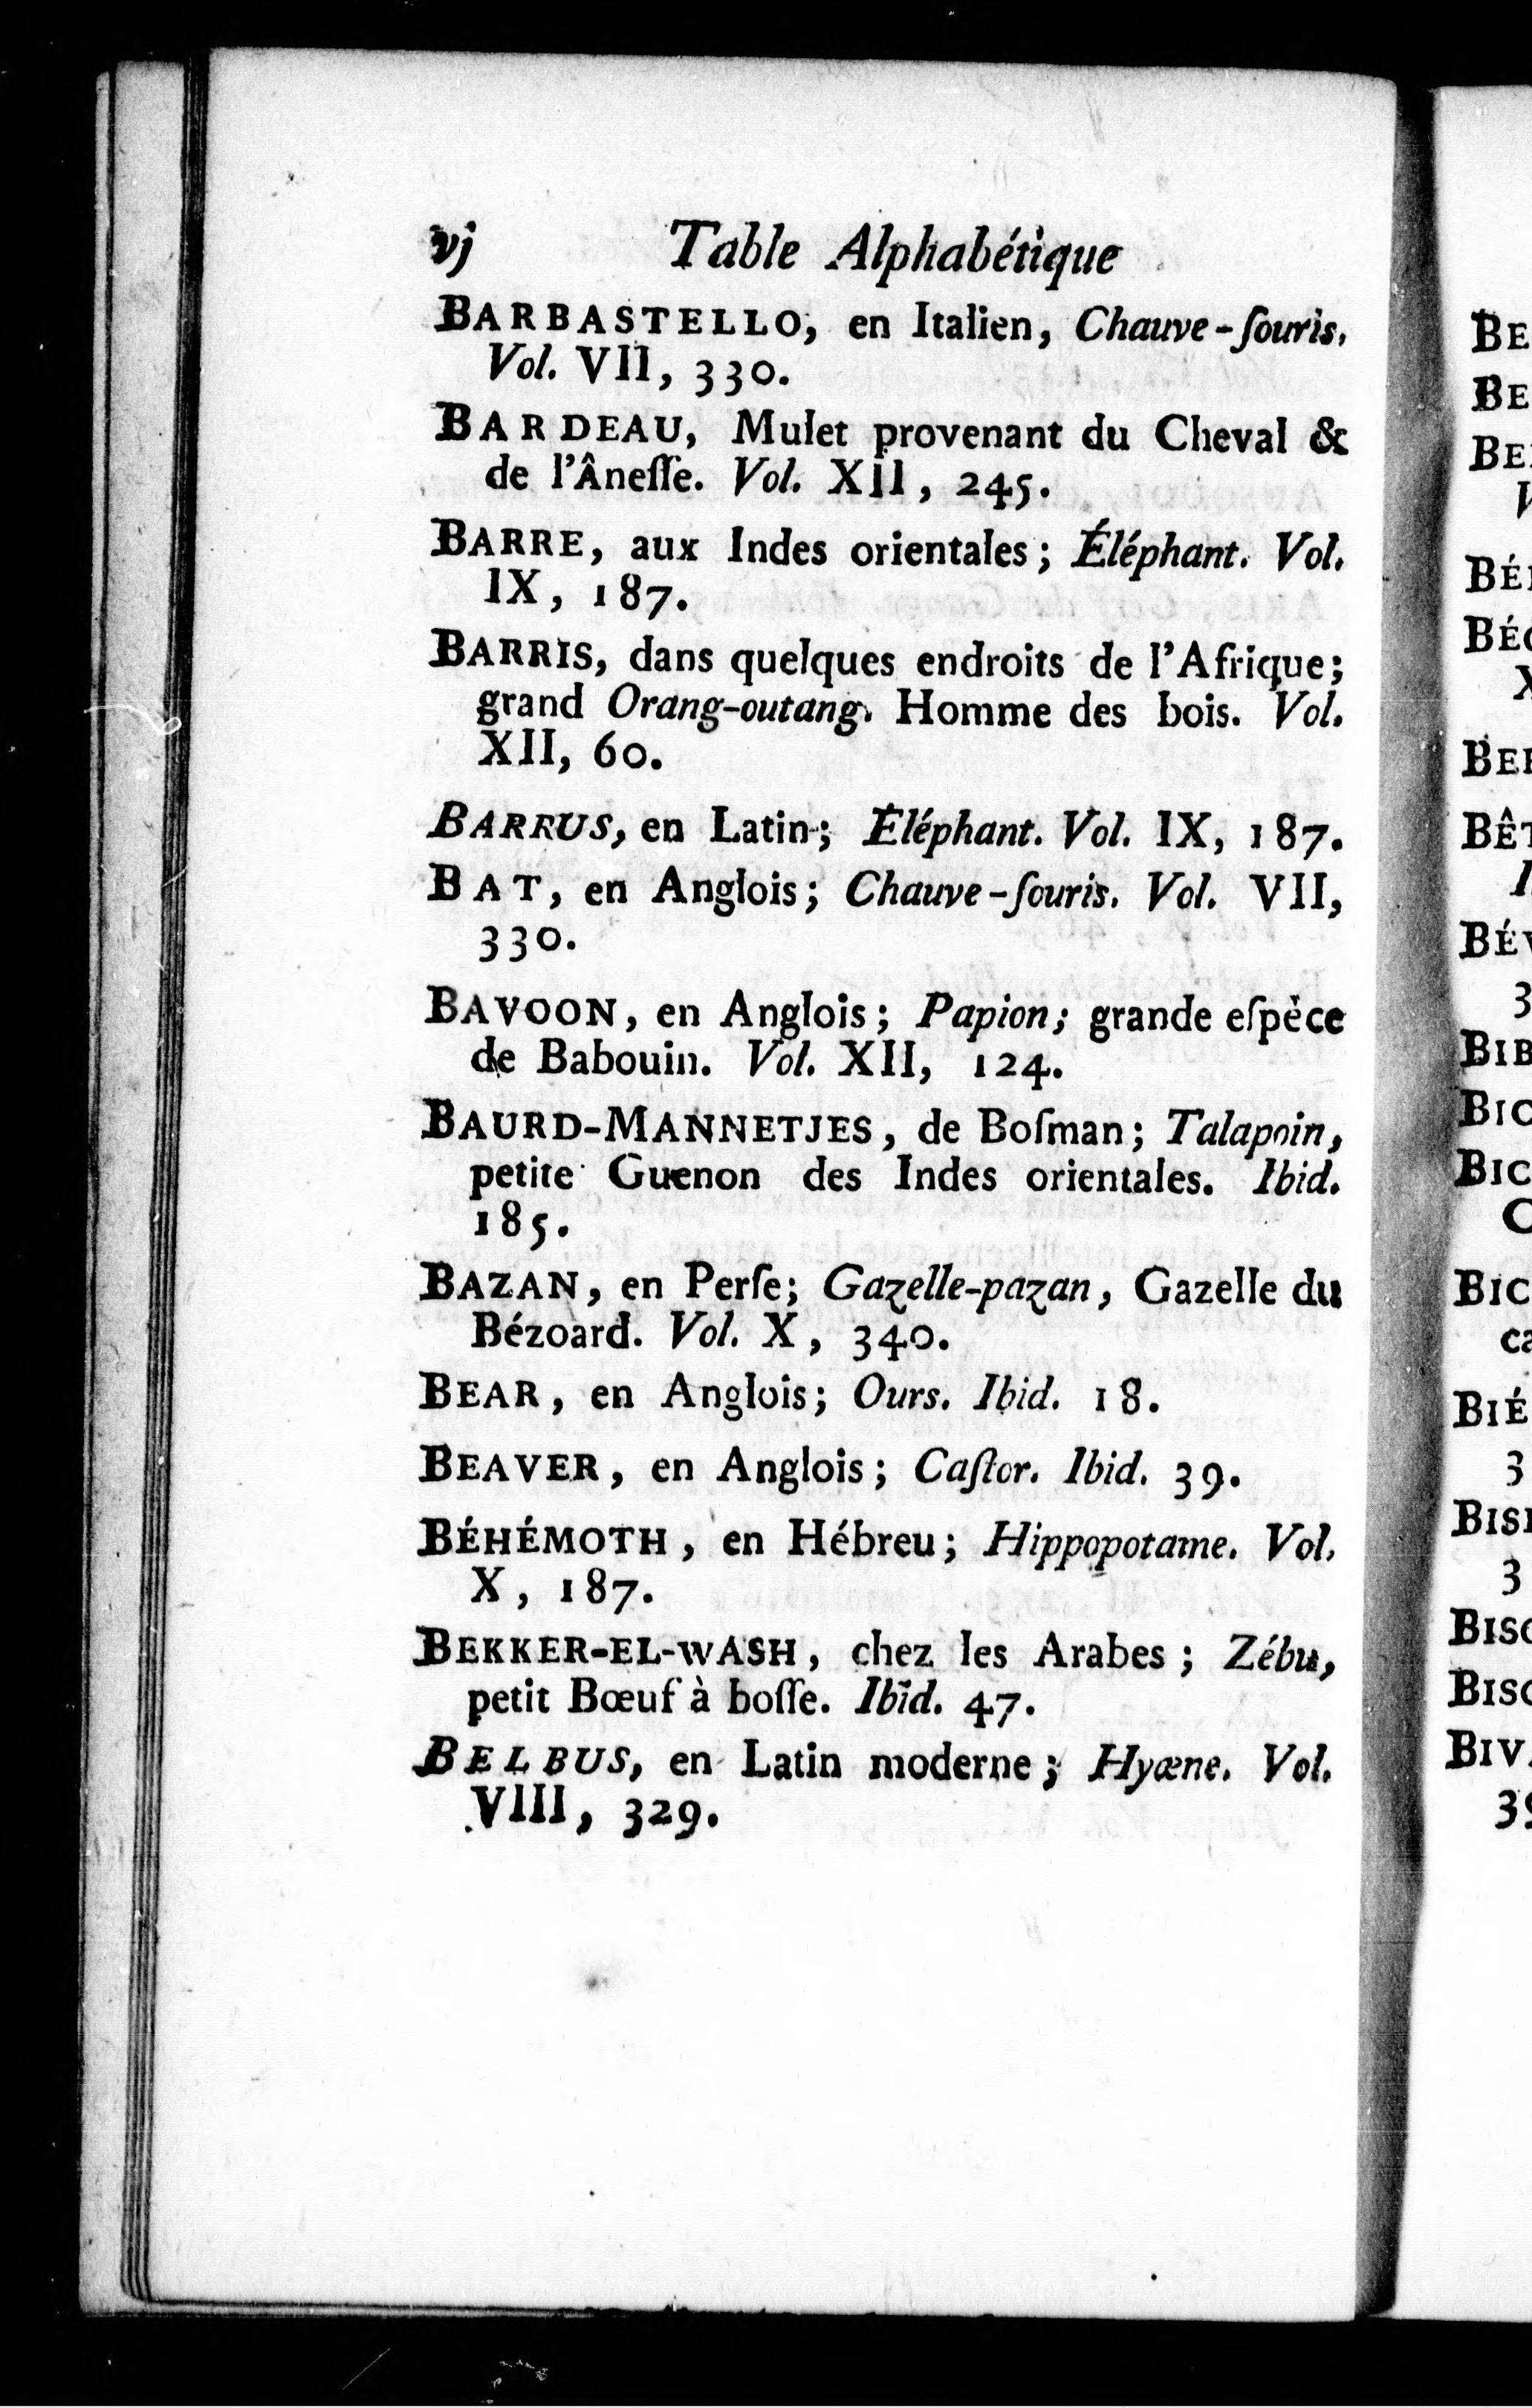 vj Table Alphabétique
BARBASTELLO, en Italien, Chauve-ſouris.
Vol. VII, 330.
BARDEAU, Mulet provenant du Cheval &
de l'Âneſſe. Vol. XII, 245.
BARRE, aux Indes orientales; Éléphant. Vol.
IX, 187.
BARRIS, dans quelques endroits de l'Afrique;
grand Orang-outang. Homme des bois. Vol.
XII, 60.
BARRUS, en Latin; Éléphant. Vol. IX, 187.
BAT, en Anglois; Chauve-ſouris. Vol. VII,
330.
BAVOON, en Anglois; Papion; grande eſpèce
de Babouin. Vol. XII, 124.
BAURD-MANNETJES, de Boſman; Talapoin,
petite Guenon des Indes orientales. Ibid.
185.
BAZAN, en Perſe; Gazelle-pazan, Gazelle du
Bézoard. Vol. X, 340.
BEAR, en Anglois; Ours. Ibid. 18.
BEAVER, en Anglois; Caſtor. Ibid. 39.
BÉHÉMOTH, en Hébreu; Hippopotame. Vol.
X, 187.
BEKKER-EL-WASH, chez les Arabes; Zébu,
petit Bœuf à boſſe. Ibid. 47.
BELBUS, en Latin moderne; Hyæne. Vol.
VIII, 329.